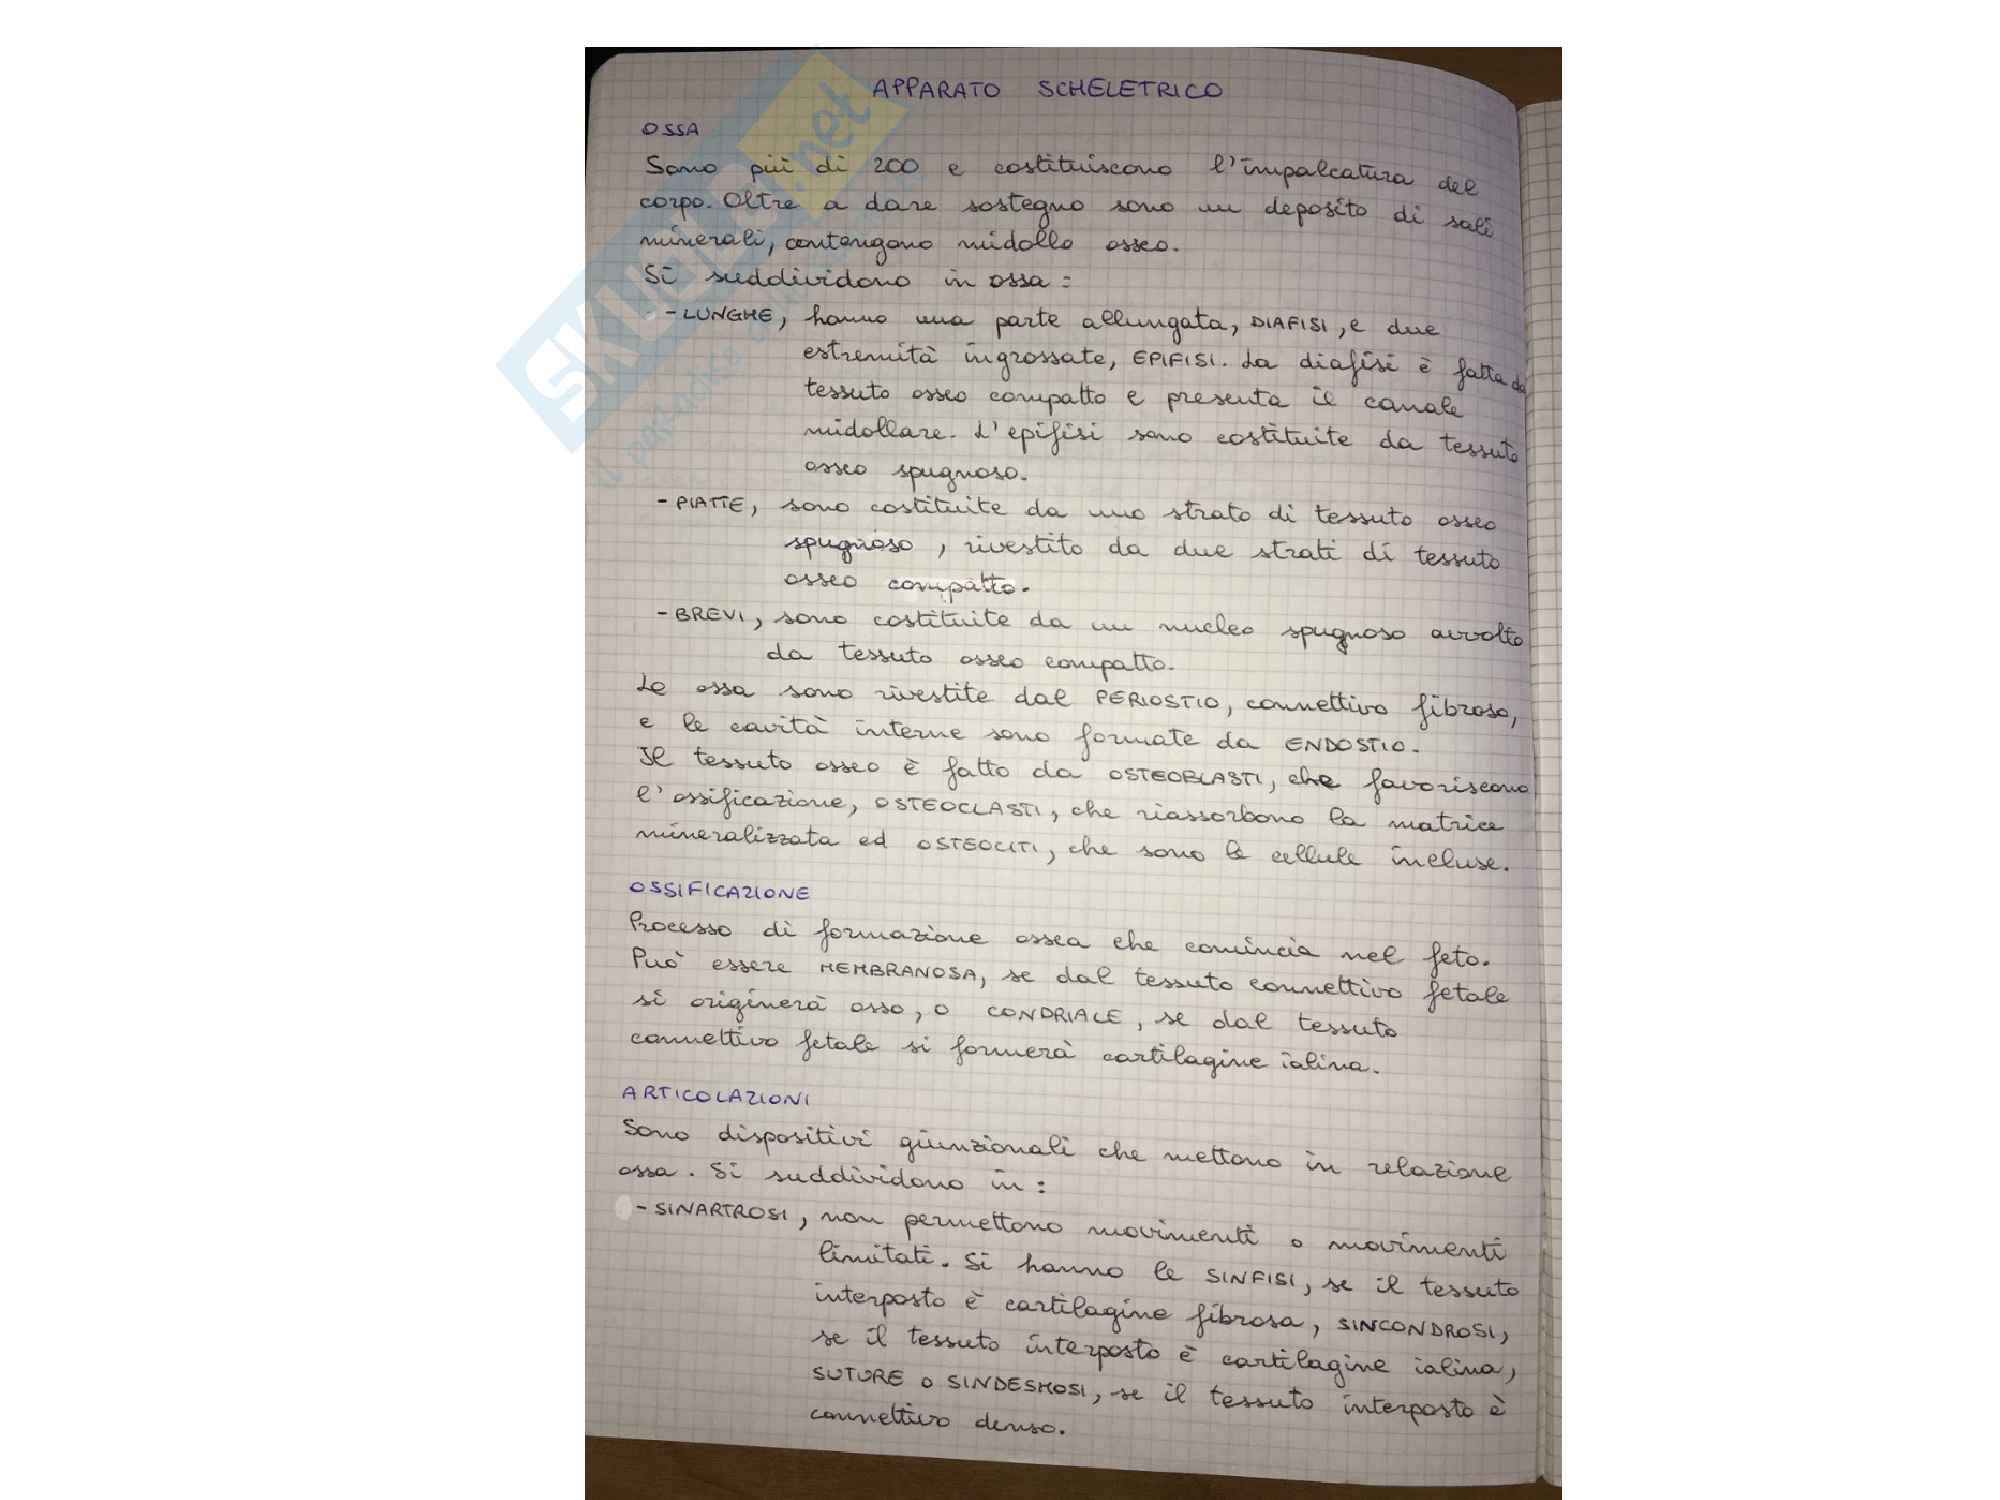 APPARATO SCHELETRICO
OSSA
Sono più di 200 e costituiscono l'impalcatura del
corpo. Oltre a dare sostegno sono un deposito di sali
minerali, contengono midollo osseo.
Si suddividono in ossa:
- LUNGHE, hanno una parte allungata, DIAFISI, e due
estremità ingrossate, EPIFISI. La diafisi è fatta da
tessuto osseo compatto e presenta il canale
midollare. L'epifisi sono costituite da tessuto
osseo spugnoso.
- PIATTE, sono costituite da uno strato di tessuto osseo
spugnoso, rivestito da due strati di tessuto
osseo compatto.
- BREVI, sono costituite da un nucleo spugnoso avvolto
da tessuto osseo compatto.
Le ossa sono rivestite dal PERIOSTIO, connettivo fibroso,
e le cavità interne sono formate da ENDOSTIO.
Il tessuto osseo è fatto da OSTEOBLASTI, che favoriscono
l'ossificazione, OSTEOCLASTI, che riassorbono la matrice
mineralizzata ed OSTEOCITI, che sono le cellule incluse.
OSSIFICAZIONE
Processo di formazione ossea che comincia nel feto.
Può essere MEMBRANOSA, se dal tessuto connettivo fetale
si originerà osso, o CONDRIALE, se dal tessuto
connettivo fetale si formerà cartilagine ialina.
ARTICOLAZIONI
Sono dispositivi giunzionali che mettono in relazione
ossa. Si suddividono in:
- SINARTROSI, non permettono movimenti o movimenti
limitati. Si hanno le SINFISI, se il tessuto
interposto è cartilagine fibrosa, SINCONDROSI,
se il tessuto interposto è cartilagine ialina,
SUTURE O SINDESMOSI, se il tessuto interposto è
connettivo denso.